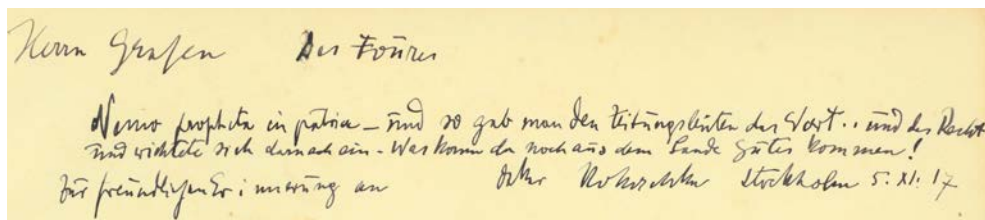 Herrn Grafen Des Foûres
Nemo propheta in patria – und so gab man den Zeitungsleuten das Wort .. und das Recht
und richtete sich darnach ein – Was kann da noch aus dem Lande Gutes kommen!
Zur freundlichen Erinnerung an Oskar Kokoschka Stockholm 5. XI. 17